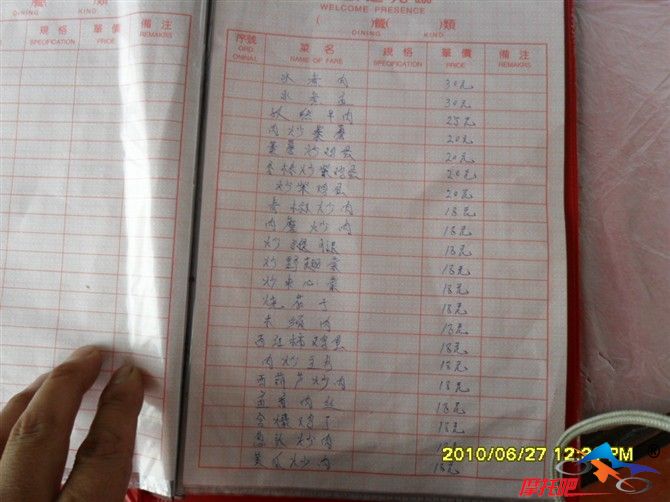 WELCOME PRESENCE
( )籠( )類
DINING KIND
序號 菜名 規格 單價 備注
ORDINAL NAME OF FARE SPECIFICATION PRICE REMAKRS
水煮肉 30元
水煮鱼 30元
25元
肉炒蕨菜 20元
蕨菜炒鸡蛋 20元
香椿炒柴鸡蛋 20元
炒柴鸡蛋 20元
尖椒炒肉 18元
肉蘑炒肉 18元
炒 腿 18元
炒野 菜 18元
炒夹心菜 18元
烧茄子 18元
木须肉 18元
西红柿鸡蛋 18元
肉炒 18元
西葫芦炒肉 18元
鱼香肉丝 18元
宫爆鸡丁 18元
炒肉
黄瓜炒肉 18元
規格 單價 備注
SPECIFICATION PRICE REMAKRS
DINING KIND
2010/06/27 12: PM
摩托吧